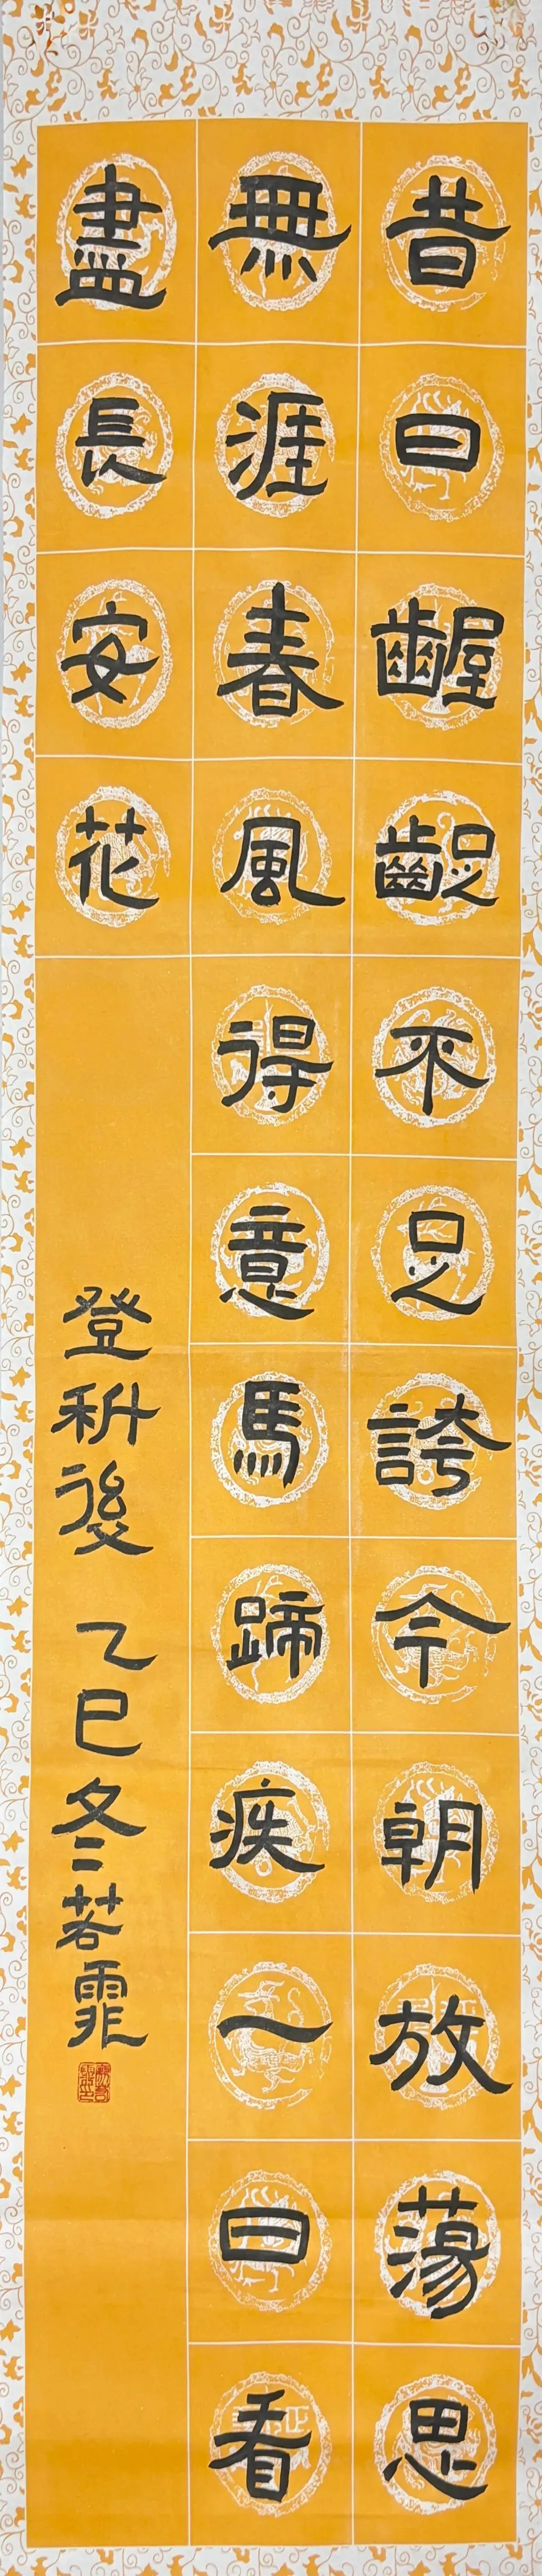 昔日齷齪不足誇今朝放蕩思
無涯春風得意馬蹄疾一日看
盡長安花
登科後 乙巳冬 若霏